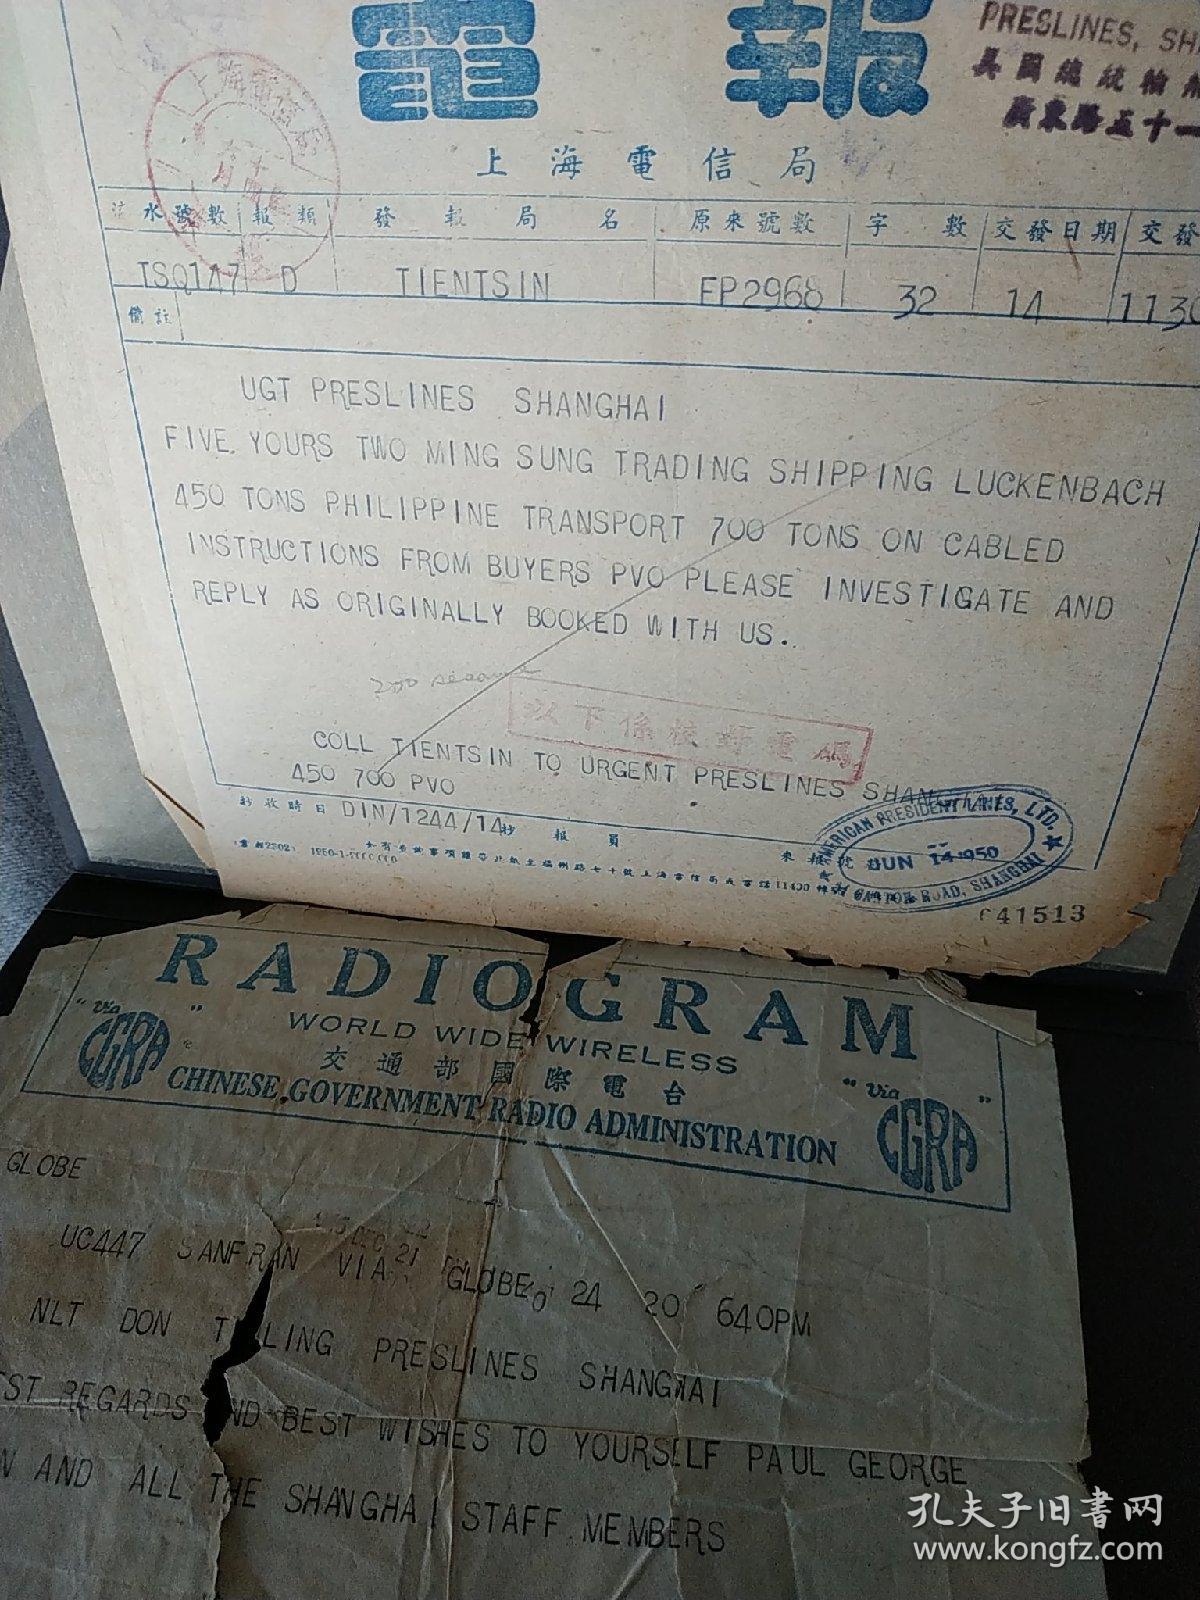 電報
PRESLINES, SH
美國總統輪
廣東路五十一
上海電信局
上海電信局
流水號數 報類 發報局名 原來號數 字數 交發日期 交發
TSQ147 D TIENTSIN EP2968 32 14 1130
備註
UGT PRESLINES SHANGHAI
FIVE. YOURS TWO MING SUNG TRADING SHIPPING LUCKENBACH
450 TONS PHILIPPINE TRANSPORT 700 TONS ON CABLED
INSTRUCTIONS FROM BUYERS PVO PLEASE INVESTIGATE AND
REPLY AS ORIGINALLY BOOKED WITH US.
以下係校對電碼
COLL TIENTSIN TO URGENT PRESLINES SHAN
450 700 PVO
抄收時日 DIN/1244/14 抄報員
AMERICAN PRESIDENT LINES, LTD. ★
JUN 14 1950
CANTON ROAD, SHANGHAI
41513
RADIOGRAM
"via CGRA"
WORLD WIDE WIRELESS
交通部國際電台
CHINESE GOVERNMENT RADIO ADMINISTRATION
"via CGRA"
GLOBE
UC447 SANFRAN VIA GLOBE 24 20 640PM
NLT DON T LING PRESLINES SHANGHAI
ST REGARDS ND BEST WISHES TO YOURSELF PAUL GEORGE
N AND ALL THE SHANGHAI STAFF MEMBERS
孔夫子旧书网
www.kongfz.com